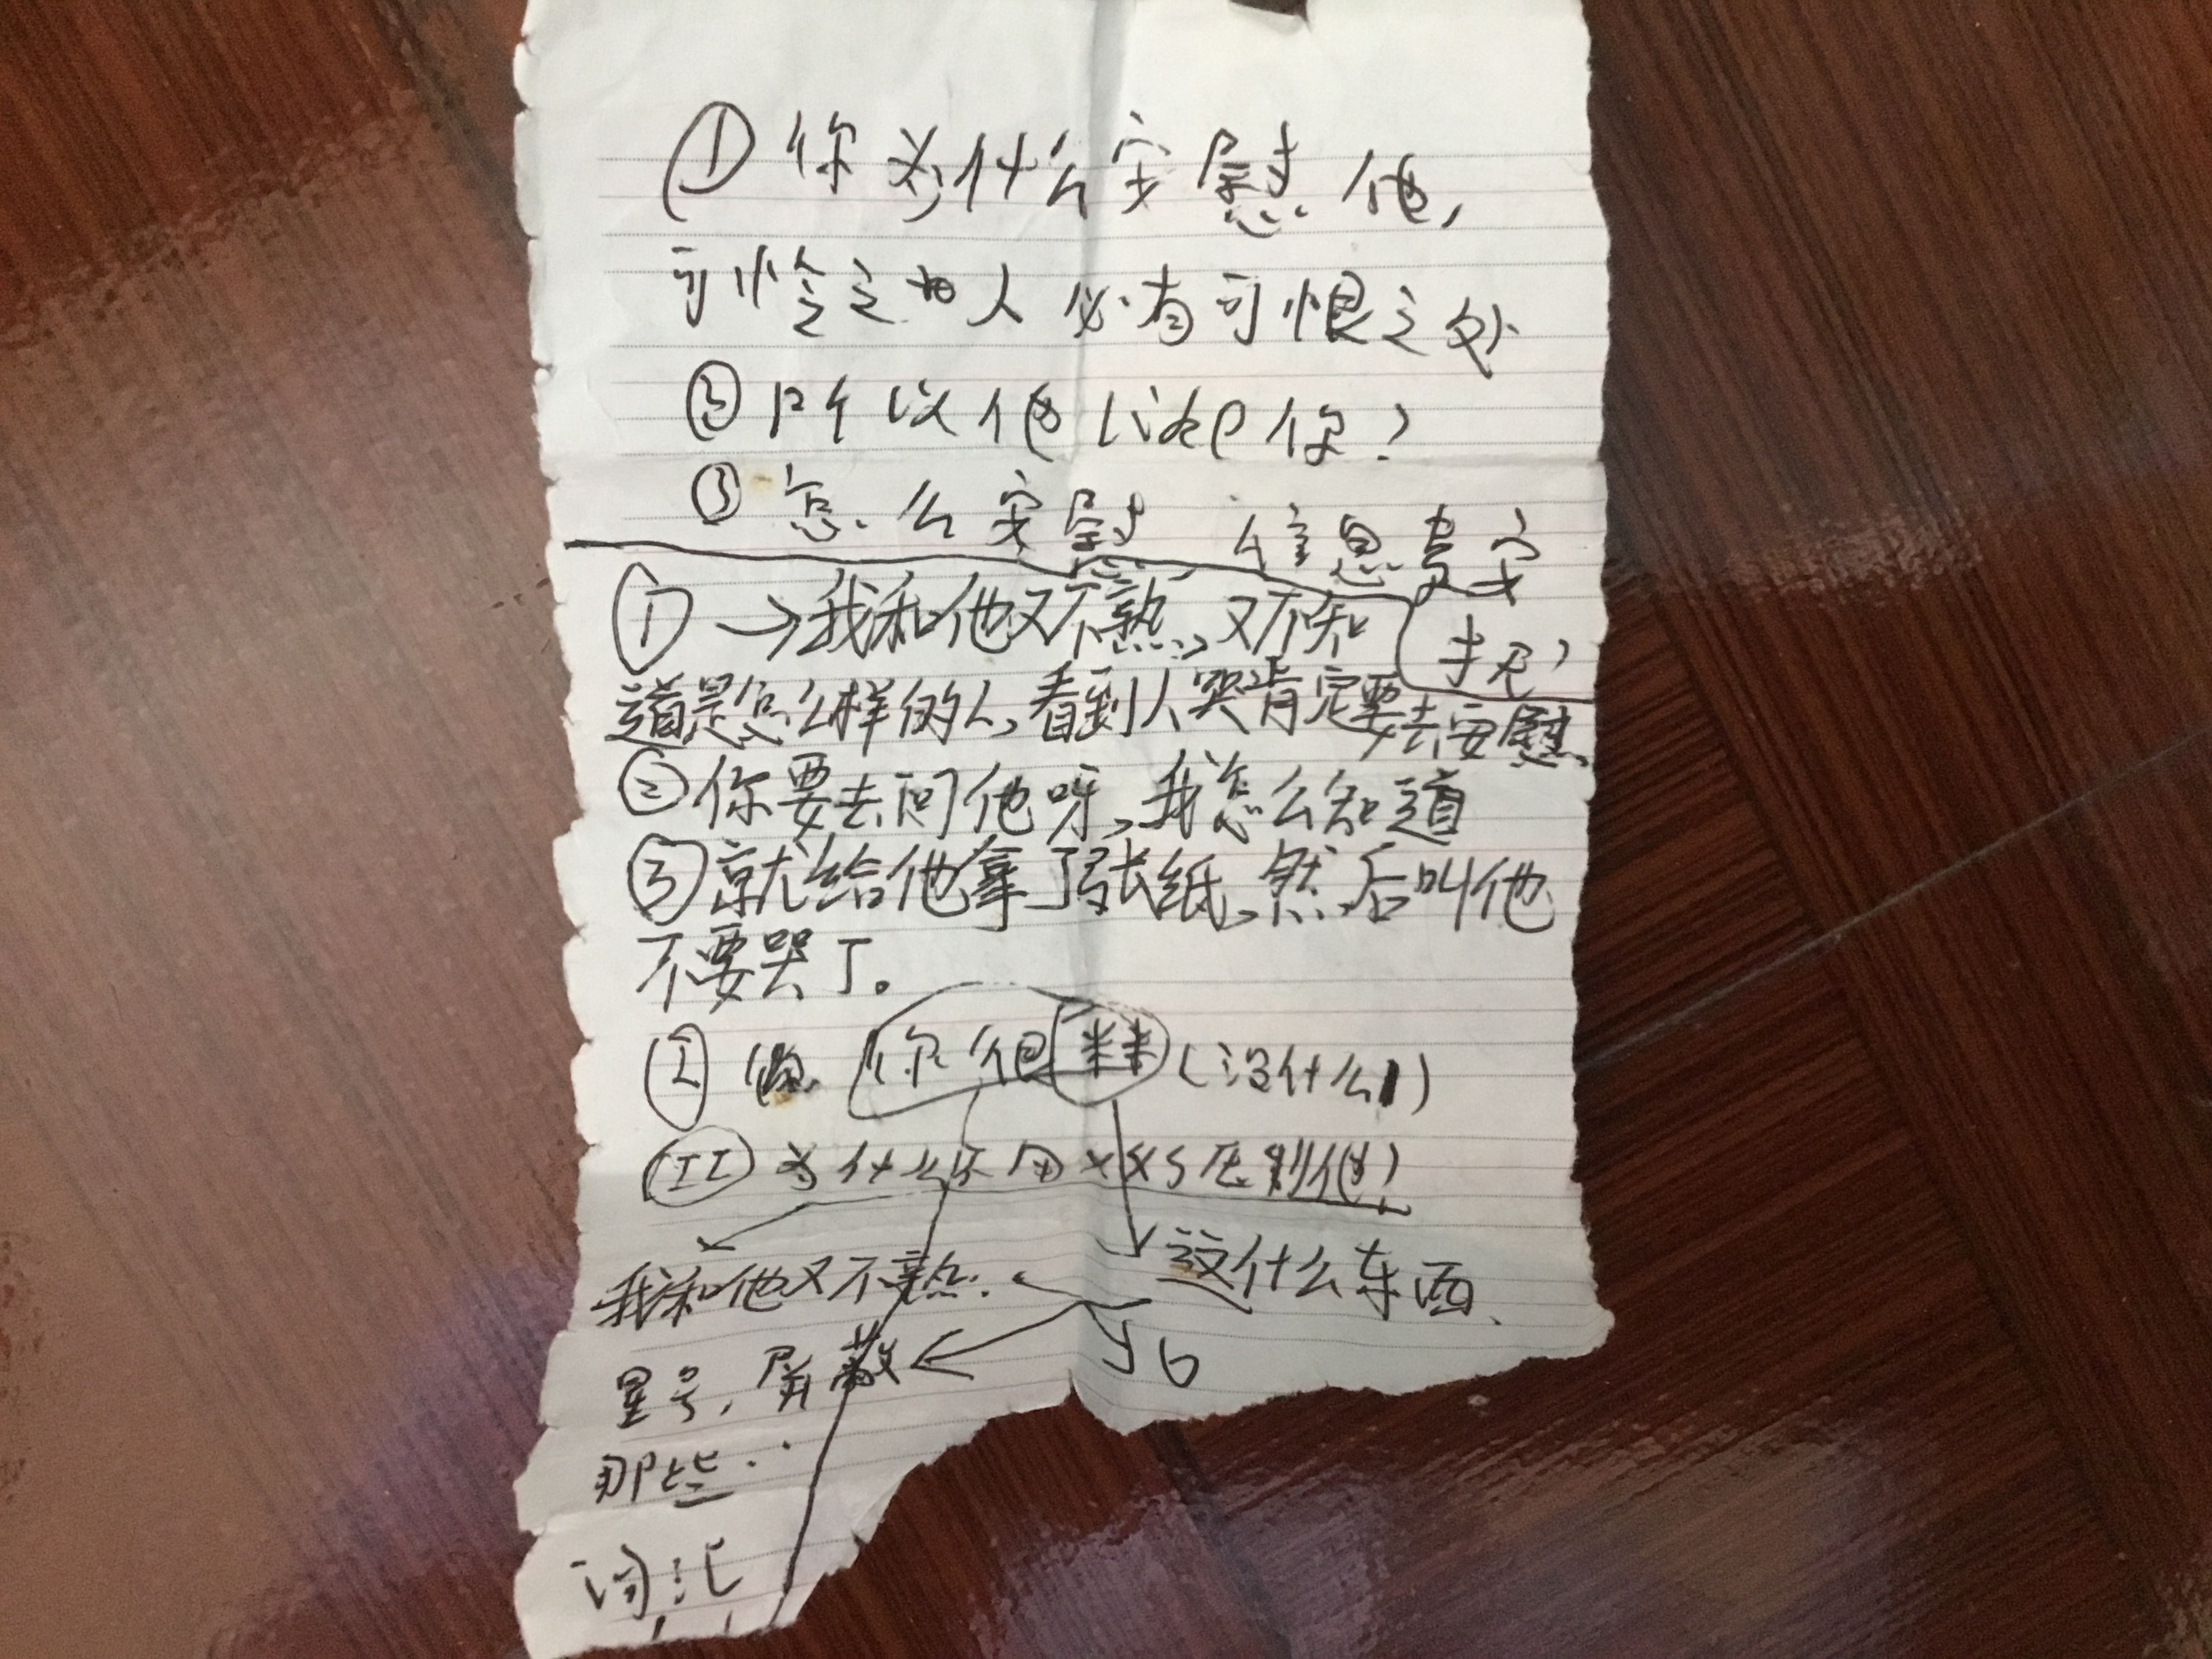 ① 你为什么安慰他,
可怜之人必有可恨之处
② 所以他认识你?
③ 怎么安慰 信息
① →我和他又不熟,又不知
道是怎么样的人,看到人哭肯定要去安慰
② 你要去问他呀,我怎么知道
③ 就给他拿了张纸,然后叫他
不要哭了。
Ⅰ 你他**(没什么)
ⅠⅠ 为什么不用××
我和他又不熟.
这什么东西、
星号,屏蔽
那些
词汇